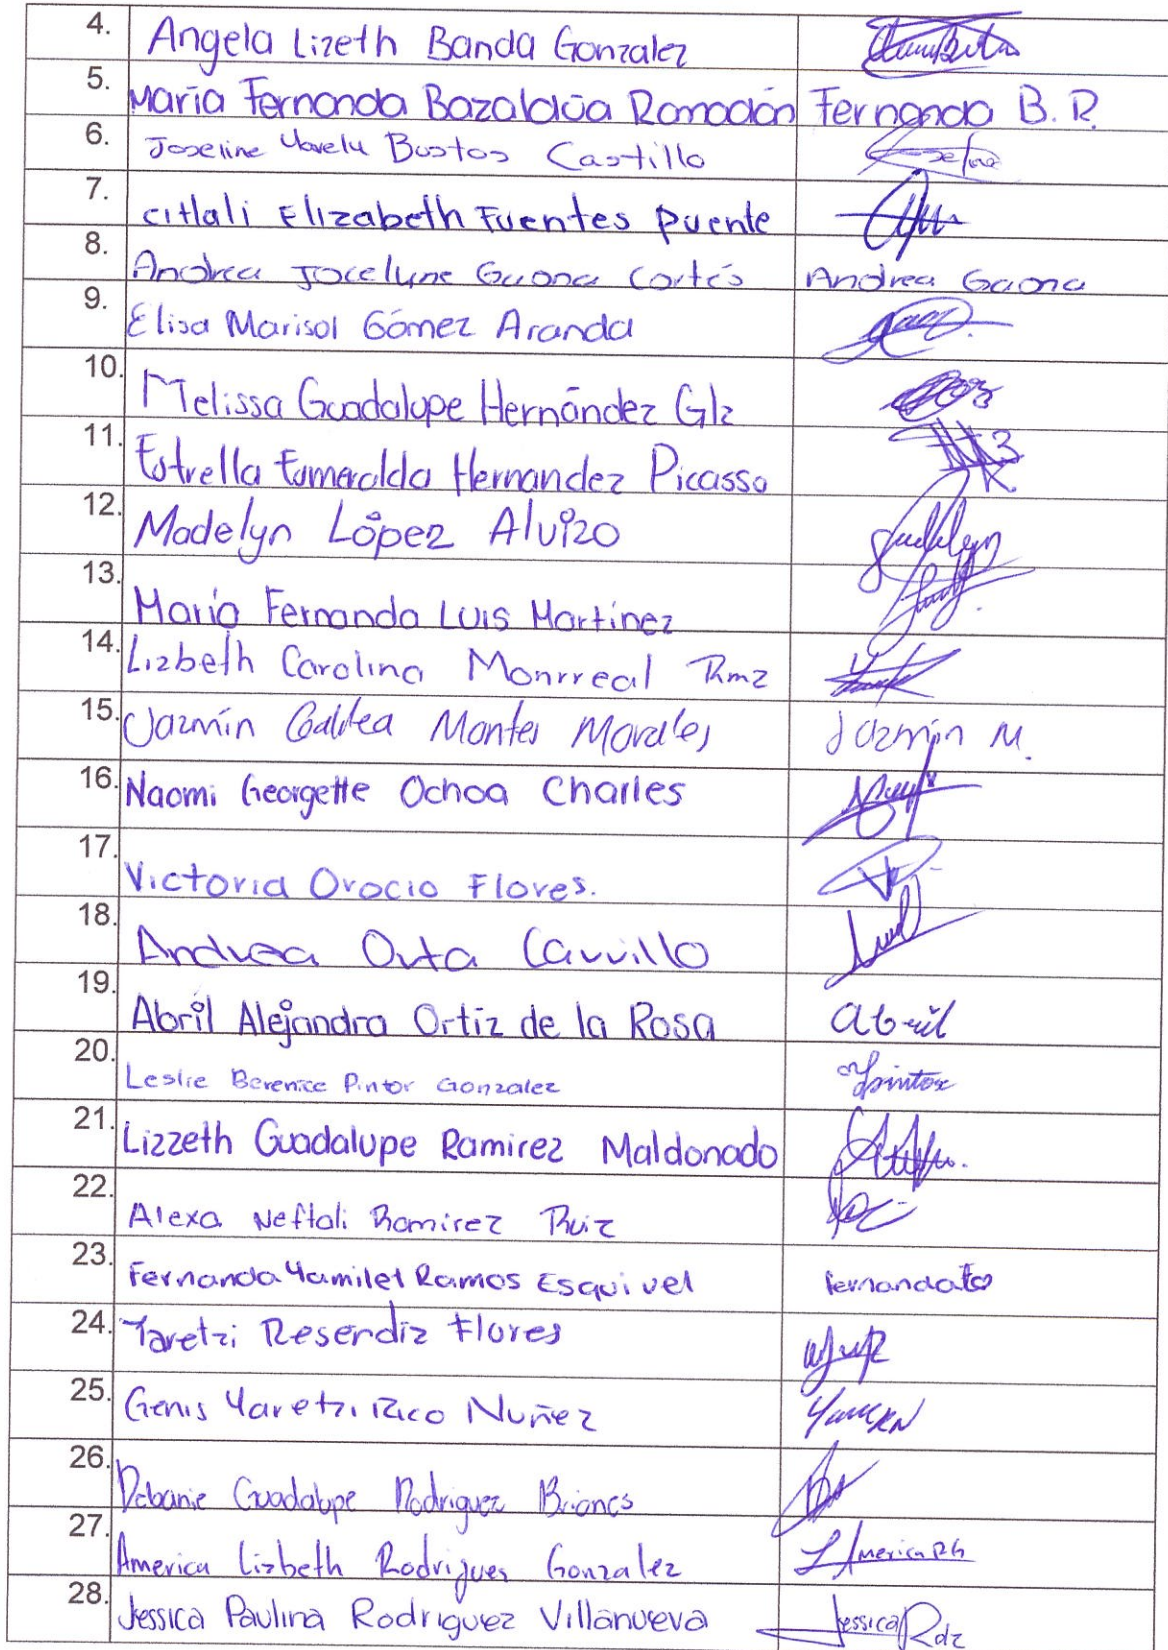 4. Angela Lizeth Banda Gonzalez
5. María Fernanda Bazaldúa Ramadán Fernanda B. R.
6. Joseline Yarely Bustos Castillo
7. citlali Elizabeth Fuentes Puente
8. Andrea Jocelyne Gaona Cortés Andrea Gaona
9. Elisa Marisol Gómez Aranda
10. Melissa Guadalupe Hernández Glz
11. Estrella Esmeralda Hernandez Picasso
12. Madelyn López Alvizo
13. María Fernanda Luis Martinez
14. Lizbeth Carolina Monrreal Rmz
15. Jazmín Galilea Montes Morales Jazmín M.
16. Naomi Georgette Ochoa Charles
17. Victoria Orocio Flores.
18. Andrea Orta Carrillo
19. Abril Alejandra Ortiz de la Rosa Abril
20. Leslie Berenice Pintor Gonzalez
21. Lizzeth Guadalupe Ramirez Maldonado
22. Alexa Neftali Ramirez Ruiz
23. Fernanda Yamilet Ramos Esquivel
24. Yaretzi Resendiz Flores
25. Genis Yaretzi Rico Nuñez
26. Debanie Guadalupe Rodriguez Briones
27. America Lizbeth Rodrigues Gonzalez America RG
28. Jessica Paulina Rodriguez Villanueva Jessica Rdz